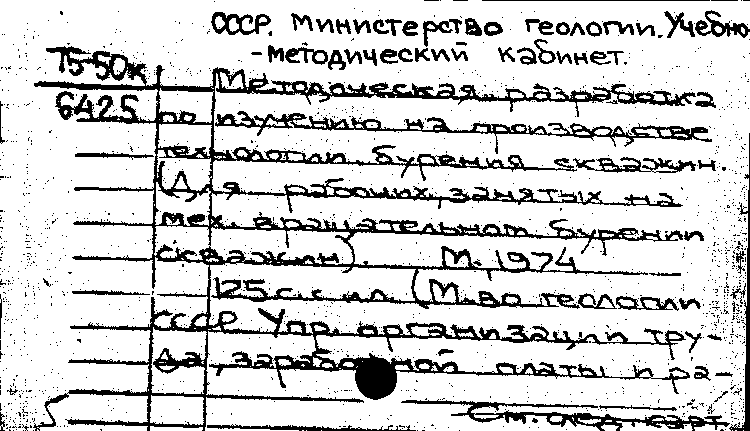 СССР. Министерство геологии. Учебно-
-методический кабинет.
75-50к
Методическая разработка
6425 по изучению на производстве
технологии бурения скважин.
(Для рабочих, занятых на
мех. вращательном бурении
скважин). М., 1974
125 с. с ил. (М-во геологии
СССР Упр. организации тру-
да, заработной платы и ра-
См. след. карт.